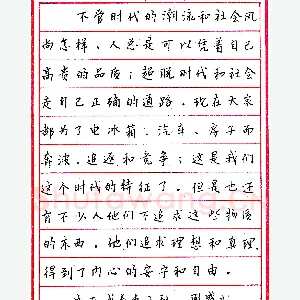 不管时代的潮流和社会风
尚怎样，人总是可以凭着自己
高贵的品质；超脱时代和社会
走自己正确的道路。现在大家
都为了电冰箱、汽车、房子而
奔波、追逐和竞争；这是我们
这个时代的特征了。但是也还
有不少人他们不追求这些物质
的东西，他们追求理想和真理，
得到了内心的安宁和自由。